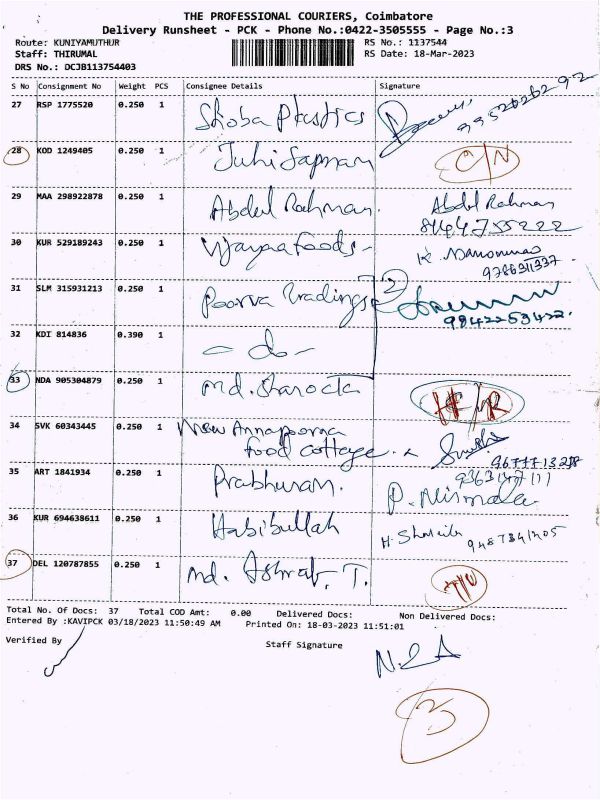 THE PROFESSIONAL COURIERS, Coimbatore
Delivery Runsheet - PCK - Phone No.:0422-3505555 - Page No.:3
Route: KUNIYAMUTHUR RS No.: 1137544
Staff: THIRUMAL RS Date: 18-Mar-2023
DRS No.: DCJB113754403
S No Consignment No Weight PCS Consignee Details Signature
27 RSP 1775520 0.250 1 Shoba Plastics
28 KOD 1249405 0.250 1 Juhi Sapnam C/N
29 MAA 298922878 0.250 1 Abdul Rahman. Abdul Rahman
8144755222
30 KUR 529189243 0.250 1 Vijayaa foods -
9786311337.
31 SLM 315931213 0.250 1 Poorva Tradings 2
9842253422.
32 KDI 814836 0.390 1 - do -
33 NDA 905304879 0.250 1 Md. Sharock
34 SVK 60343445 0.250 1 New Annapoorna
food Cottage.
35 ART 1841934 0.250 1 Prabhuram. P. Nirmala
36 KUR 694638611 0.250 1 Habibullah
37 DEL 120787855 0.250 1 Md. Ashraf. T.
Total No. Of Docs: 37 Total COD Amt: 0.00 Delivered Docs: Non Delivered Docs:
Entered By :KAVIPCK 03/18/2023 11:50:49 AM Printed On: 18-03-2023 11:51:01
Verified By Staff Signature
3